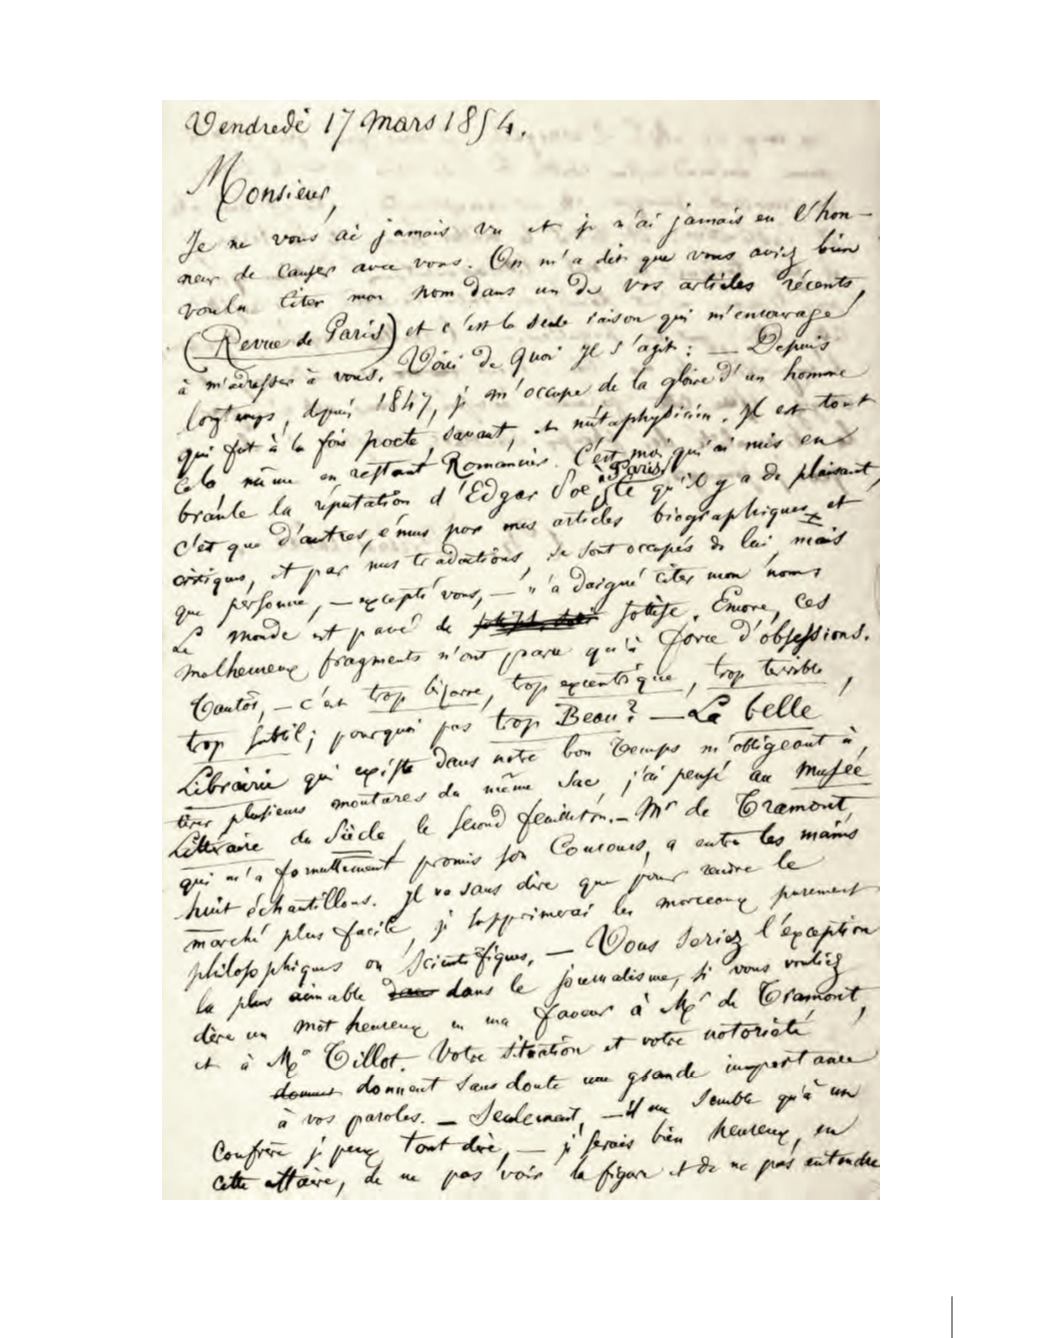 Vendredi 17 mars 1854.
Monsieur,
Je ne vous ai jamais vu et je n'ai jamais eu l'hon-
neur de causer avec vous. On m'a dit que vous aviez bien
voulu citer mon nom dans un de vos articles récents,
(Revue de Paris) et c'est la seule raison qui m'encourage
à m'adresser à vous. Voici de quoi il s'agit : — Depuis
longtemps, depuis 1847, je m'occupe de la gloire d'un homme
qui fut à la fois poète, savant, et métaphysicien. Il est tout
cela même en restant Romancier. C'est moi qui ai mis en
branle la réputation d'Edgar Poe à Paris; Ce qu'il y a de plaisant,
c'est que d'autres, émus par mes articles biographiques et
critiques, et par mes traductions, se sont occupés de lui, mais
que personne, — excepté vous, — n'a daigné citer mon nom.
Le monde est pavé de sottise. Encore, ces
malheureux fragments n'ont paru qu'à force d'obsessions.
Tantôt, — c'est trop bizarre, trop excentrique, trop terrible,
trop subtil; pourquoi pas trop Beau? — La belle
Librairie qui existe dans notre bon temps m'obligeant à
tirer plusieurs moutures du même sac, j'ai pensé au Musée
Littéraire du Siècle, le second feuilleton. — Mr de Tramont,
qui m'a formellement promis son Concours, a entre les mains
huit échantillons. Il va sans dire que pour rendre le
marché plus facile, je supprimerai les morceaux purement
philosophiques ou scientifiques. — Vous seriez l'exception
la plus aimable dans dans le journalisme, si vous vouliez
dire un mot heureux en ma faveur à Mr de Tramont,
et à Mr Tillot. Votre situation et votre notoriété
donnent donnent sans doute une grande importance
à vos paroles. — Seulement, — il me semble qu'à un
confrère je peux tout dire, — je serais bien heureux, en
cette affaire, de ne pas voir la figure et de ne pas entendre